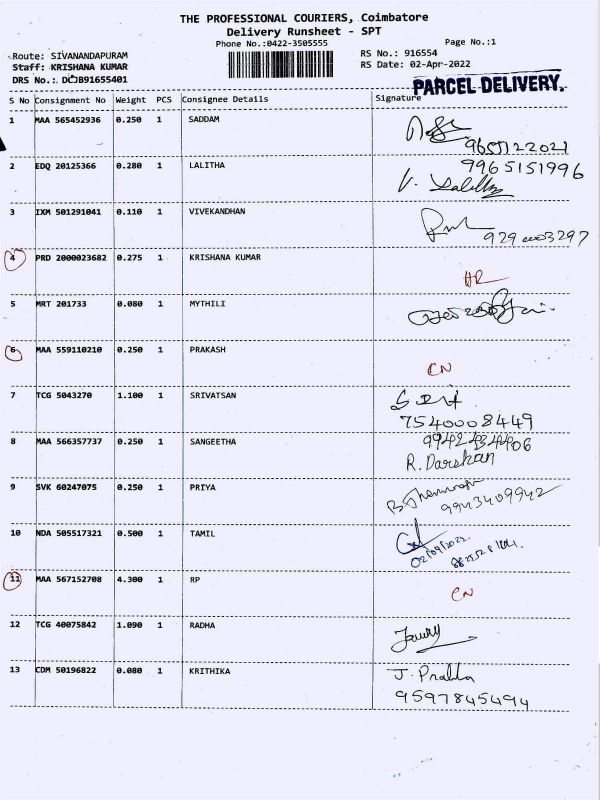 THE PROFESSIONAL COURIERS, Coimbatore
Delivery Runsheet - SPT
Phone No.:0422-3505555 Page No.:1
Route: SIVANANDAPURAM RS No.: 916554
Staff: KRISHANA KUMAR RS Date: 02-Apr-2022
DRS No.: DCJB91655401
PARCEL DELIVERY.
S No Consignment No Weight PCS Consignee Details Signature
1 MAA 565452936 0.250 1 SADDAM
9655122021
2 EDQ 20125366 0.280 1 LALITHA 9965151996
V. Lalitha
3 IXM 501291041 0.110 1 VIVEKANDHAN
4 PRD 2000023682 0.275 1 KRISHANA KUMAR
HR
5 MRT 201733 0.080 1 MYTHILI
6 MAA 559110210 0.250 1 PRAKASH
CN
7 TCG 5043270 1.100 1 SRIVATSAN
7540008449
8 MAA 566357737 0.250 1 SANGEETHA
R. Darshan
9 SVK 60247075 0.250 1 PRIYA
9943409942
10 NDA 505517321 0.500 1 TAMIL
02/04/2022
11 MAA 567152708 4.300 1 RP
CN
12 TCG 40075842 1.090 1 RADHA
13 CDM 50196822 0.080 1 KRITHIKA J. Prabha
9597845494